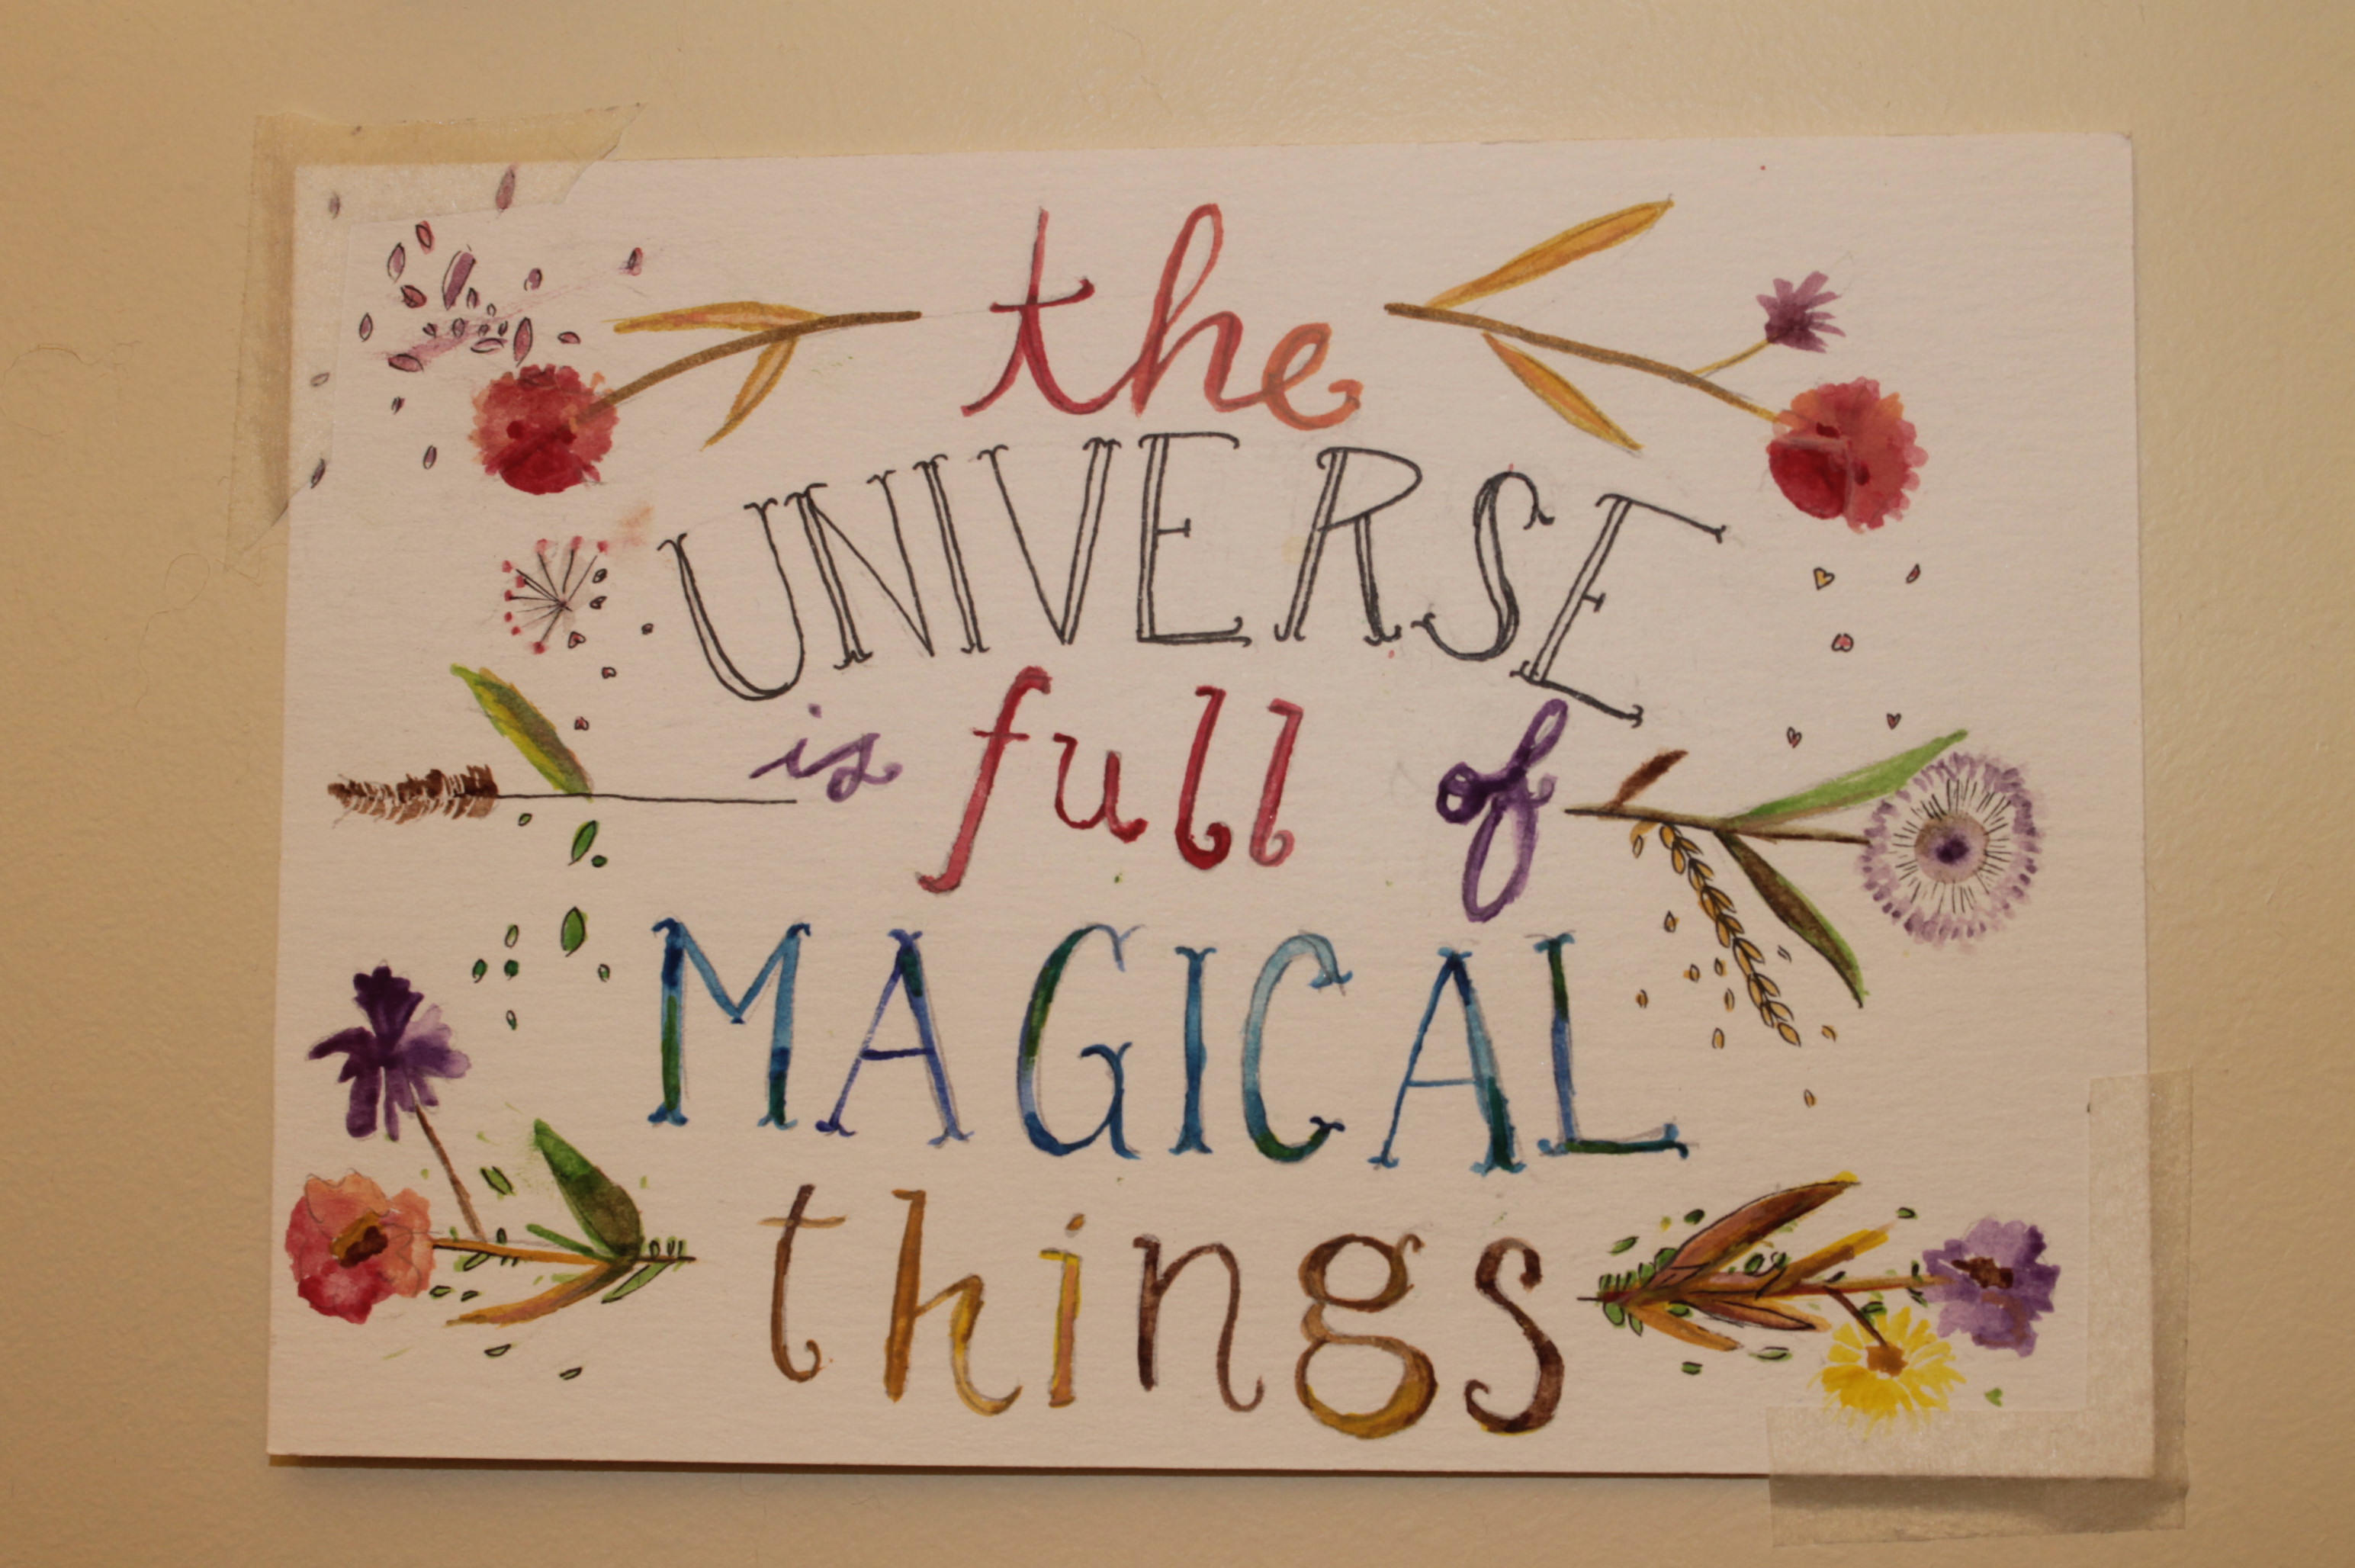 the
UNIVERSE
is full of
MAGICAL
things